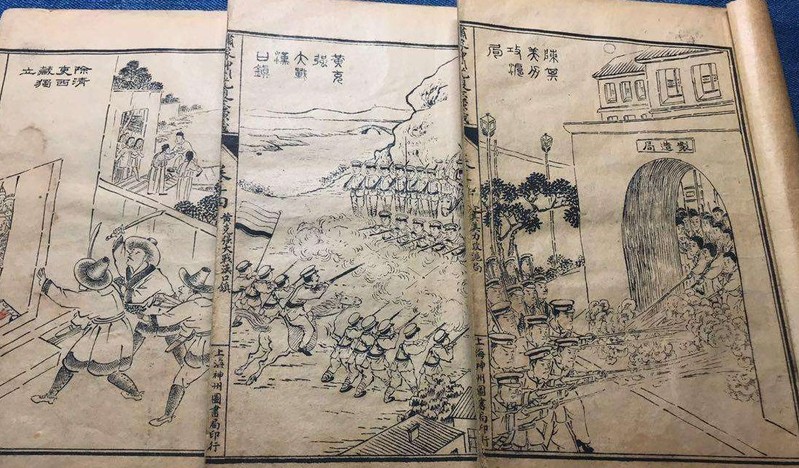 陳其
美力
攻滬
局
製造局
上海神州圖書局印行
黃克
強
大戰
漢
口鎮
回 黃克強大戰漢口鎮
上海神州圖書局印行
除清
吏西
藏獨
立